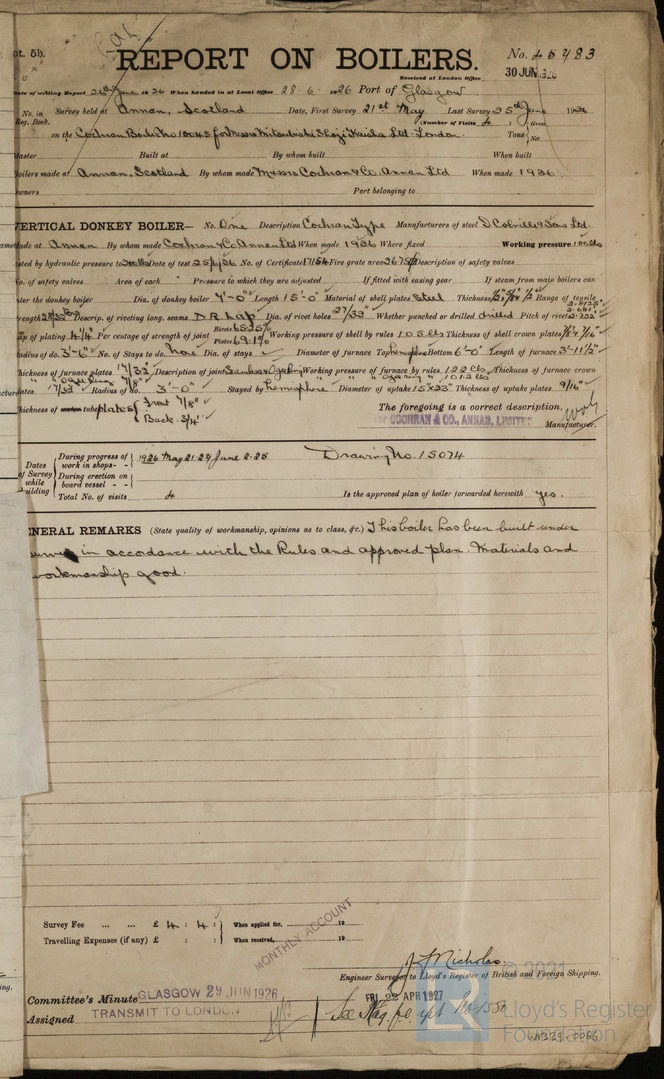 pt. 5b.
REPORT ON BOILERS.
No. 45483
Received at London Office 30 JUN 1926
ate of writing Report 26th June 1926 When handed in at Local Office 28-6-1926 Port of Glasgow
No. in Survey held at Annan, Scotland Date, First Survey 21st May Last Survey 25th June 1926
Reg. Book. (Number of Visits 4 )
on the Cochran Boiler No 10045 for Messrs Mitsubishi Shoji Kaisha Ltd. London. Tons { Gross Net
Master Built at By whom built When built
oilers made at Annan, Scotland By whom made Messrs Cochran & Co. Annan Ltd When made 1926
wners Port belonging to
VERTICAL DONKEY BOILER— No. One Description Cochran Type Manufacturers of steel D Colville & Sons Ltd.
ade at Annan By whom made Cochran & Co Annan Ltd When made 1926 Where fixed Working pressure 100 lbs
sted by hydraulic pressure to 200 lbs Date of test 25/6/26 No. of Certificate 17154 Fire grate area Description of safety valves
o. of safety valves Area of each Pressure to which they are adjusted If fitted with easing gear If steam from main boilers can
nter the donkey boiler Dia. of donkey boiler 7'-0" Length 15'-0" Material of shell plates Steel Thickness Range of tensile
strength 28/32 Descrip. of riveting long. seams D R Lap Dia. of rivet holes 27/32" Whether punched or drilled drilled Pitch of rivets
p of plating 4¼" Per centage of strength of joint Rivets Plates 69.1% Working pressure of shell by rules 105 lbs Thickness of shell crown plates
Radius of do. 3'-6" No. of Stays to do. None Dia. of stays Diameter of furnace Top hemisphere Bottom 6'-0" Length of furnace 3'-11½"
hickness of furnace plates 17/32" Description of joint Seamless Ogee Ring Working pressure of furnace by rules 122 lbs Thickness of furnace crown
lates 17/32" Radius of do. 3'-0" Stayed by hemisphere Diameter of uptake 15"x23" Thickness of uptake plates 9/16"
hickness of water tubeplates { Front 7/8"
Back 3/4"
The foregoing is a correct description,
For COCHRAN & CO., ANNAN, LIMITED
Manufacturer.
Dates of Survey while building
During progress of work in shops - - 1926 May 21 24 June 2. 25
During erection on board vessel - -
Total No. of visits 4
Drawing No. 15074
Is the approved plan of boiler forwarded herewith yes.
ENERAL REMARKS (State quality of workmanship, opinions as to class, &c.) This boiler has been built under
in accordance with the Rules and approved plan. Materials and
workmanship good.
Survey Fee ... ... £ 4 : 4 : When applied for, 19
Travelling Expenses (if any) £ : : When received, 19
MONTHLY ACCOUNT
J. Nicholas.
Engineer Surveyor to Lloyd's Register of British and Foreign Shipping.
Committee's Minute GLASGOW 29 JUN 1926
FRI. 22 APR 1927
Assigned TRANSMIT TO LONDON
See
© 2021
LR Lloyd's Register Foundation
W1339-0066